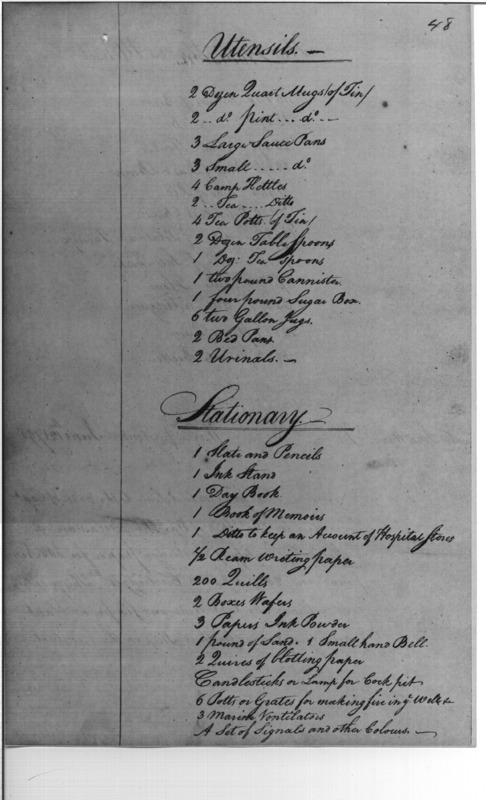 48
Utensils. —
2 Dozen Quart Mugs (of Tin)
2 .. do. pint .... do. —
3 Large Sauce Pans
3 Small ..... do.
4 Camp Kettles
2 .. Tea .... Ditto
4 Tea Potts (of Tin)
2 Dozen Table Spoons
1 Doz: Tea Spoons
1 two pound Cannister
1 four pound Sugar Box.
6 two Gallon Jugs.
2 Bed Pans
2 Urinals. —
Stationary. —
1 Slate and Pencils
1 Ink Stand
1 Day Book
1 Book of Memoirs
1 Ditto to keep an Account of Hospital Stores
1/2 Ream writing paper
200 Quills
2 Boxes Wafers
3 Papers Ink Powder
1 pound of Sand. 1 Small hand Bell.
2 Quires of blotting paper
Candlesticks or Lamp for Cock pit
6 Potts or Grates for making fire in ye Well &c
3 Marine Ventilators
A Set of Signals and other Colours. —